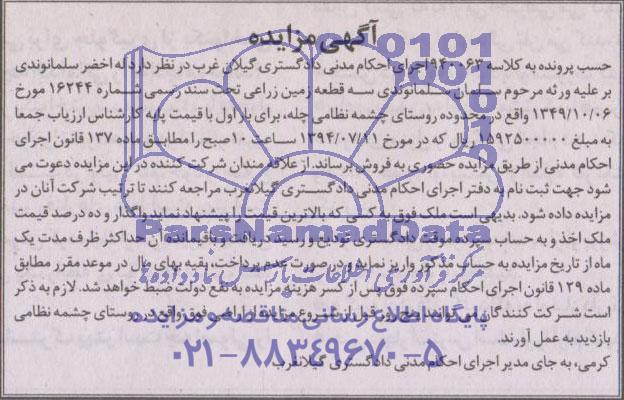 آگهی مزایده
حسب پرونده به کلاسه ۹۴۰۰۶۳ اجرای احکام مدنی دادگستری گیلان غرب در نظر دارد له اخضر سلمانوندی
بر علیه ورثه مرحوم سلمان سلمانوندی سه قطعه زمین زراعی تحت سند رسمی شماره ۱۶۲۴۴ مورخ
۱۳۴۹/۱۰/۰۶ واقع در محدوده روستای چشمه نظامی چله، برای بار اول با قیمت پایه کارشناس ارزیاب جمعا
به مبلغ ۱۵۹۲۵۰۰۰۰۰ ریال که در مورخ ۱۳۹۴/۰۷/۱۱ ساعت ۱۰ صبح را مطابق ماده ۱۳۷ قانون اجرای
احکام مدنی از طریق مزایده حضوری به فروش برساند. از علاقه مندان شرکت کننده در این مزایده دعوت می
شود جهت ثبت نام به دفتر اجرای احکام مدنی دادگستری گیلانغرب مراجعه کنند تا ترتیب شرکت آنان در
مزایده داده شود. بدیهی است ملک فوق به کسی که بالاترین قیمت را پیشنهاد نماید واگذار و ده درصد قیمت
ملک اخذ و به حساب سپرده موقت دادگستری تودیع و رسید دریافت و باقیمانده آن حداکثر ظرف مدت یک
ماه از تاریخ مزایده به حساب مذکور واریز نماید و در صورت عدم پرداخت بقیه بهای مال در موعد مقرر مطابق
ماده ۱۲۹ قانون اجرای احکام سپرده فوق پس از کسر هزینه مزایده به نفع دولت ضبط خواهد شد. لازم به ذکر
است شرکت کنندگان می توانند پنج روز قبل از شروع مزایده از اراضی فوق واقع در روستای چشمه نظامی
بازدید به عمل آورند.
کرمی، به جای مدیر اجرای احکام مدنی دادگستری گیلانغرب
ParsNamadData
مرکز فرآوری اطلاعات پارس نماد داده ها
پایگاه اطلاع رسانی مناقصه و مزایده
۰۲۱-۸۸۳۴۹۶۷۰-۵